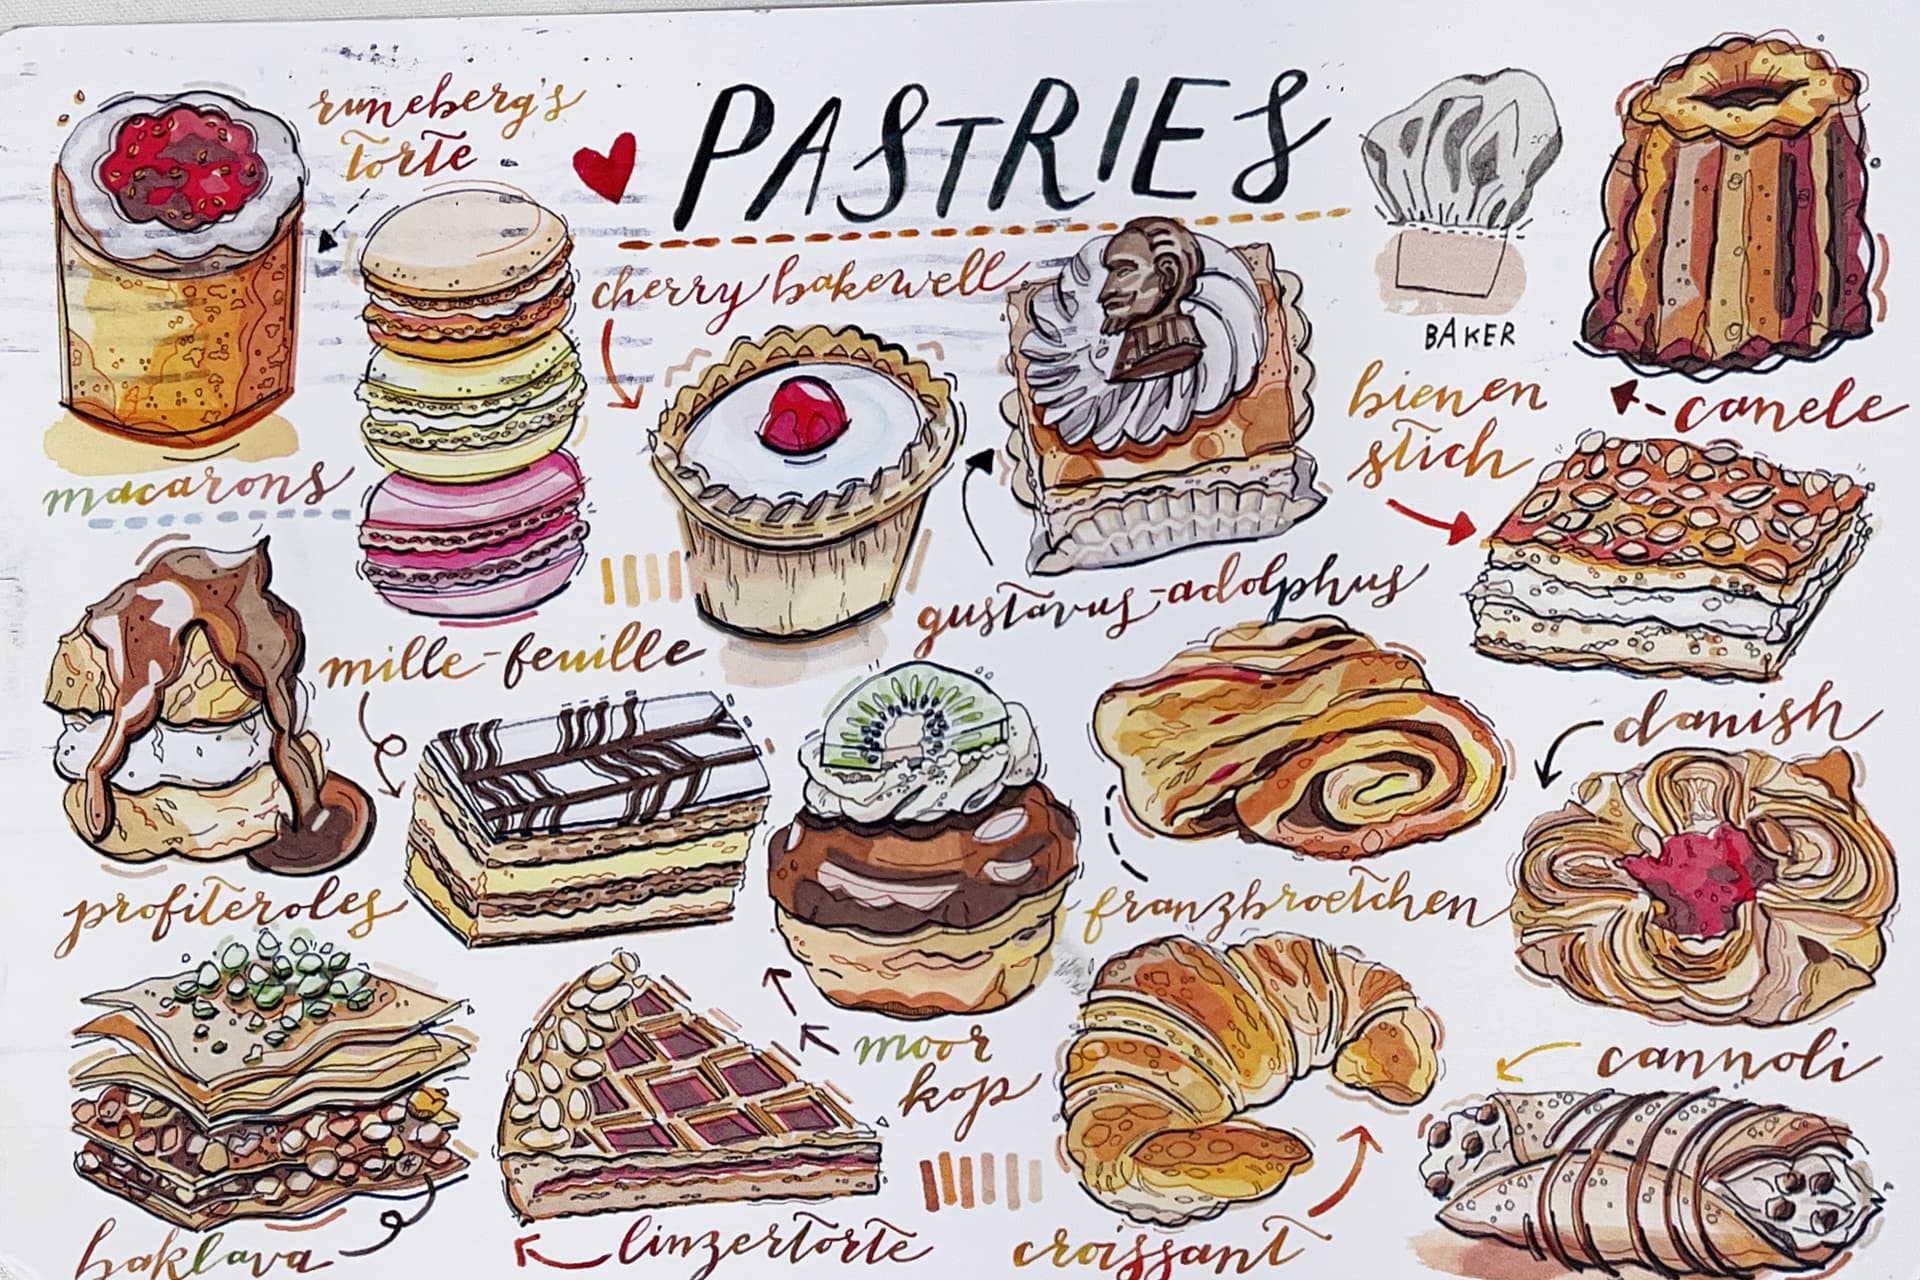 PASTRIES
runeberg's
torte
BAKER
cherry bakewell
canele
bienen
stich
macarons
gustavus-adolphus
mille-feuille
danish
profiteroles
franzbroetchen
moor
kop
cannoli
baklava
linzertorte
croissant